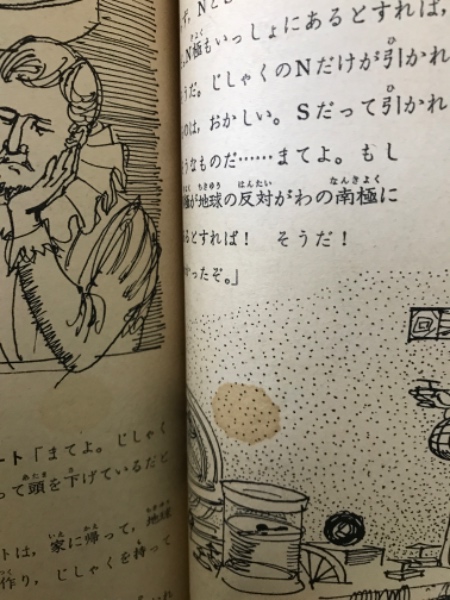 ート「まてよ。じしゃく
って頭を下げているだと
トは,家に帰って,地球
作り,じしゃくを持って
N極もいっしょにあるとすれば,
うだ。じしゃくのNだけが引かれ
のは,おかしい。Sだって引かれ
うなものだ……まてよ。もし
極が地球の反対がわの南極に
るとすれば! そうだ!
かったぞ。」